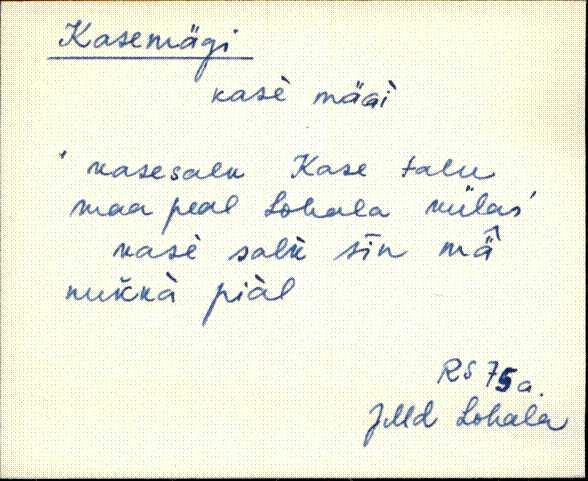 Kasemägi
kasè mäGì
'kasesalk Kase talu
maa peal Lohala külas'
kasè salk sīn mä̂
nuk̆kà piàl
RS 75a.
JMd Lohala